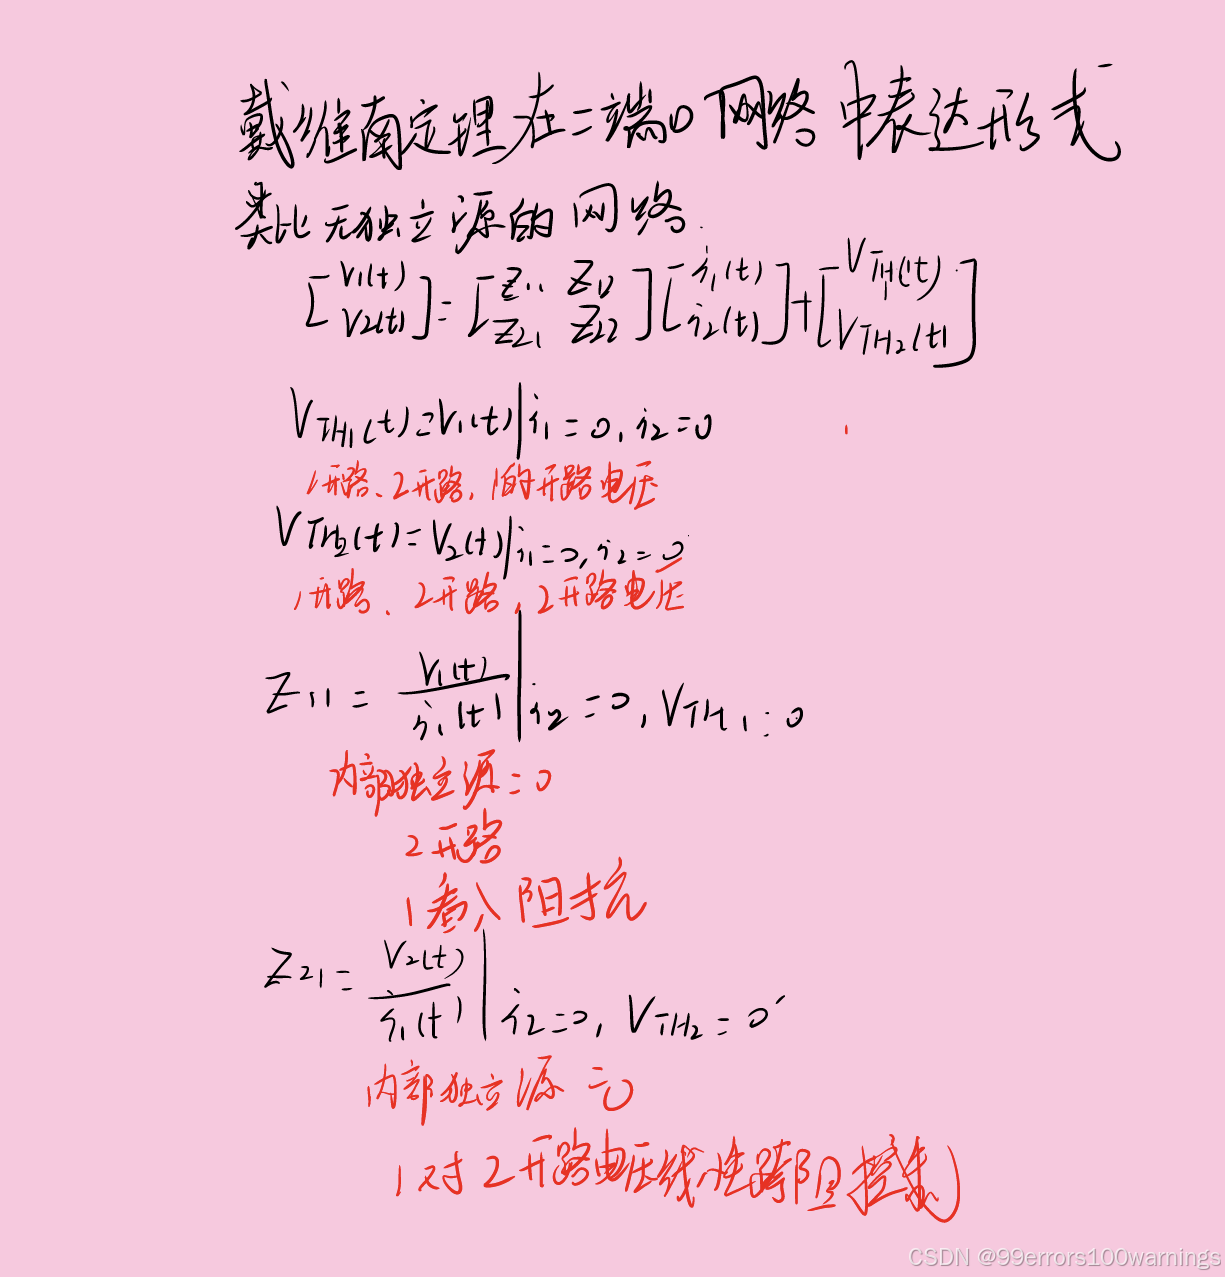 戴维南定理在二端口网络中表达形式
类比无独立源的网络.
[v1(t) V2(t)] = [Z11 Z12 Z21 Z22] [i1(t) i2(t)] + [VTH1(t) VTH2(t)]
VTH1(t)=V1(t)|i1=0, i2=0
1开路、2开路,1的开路电压
VTH2(t)=V2(t)|i1=0, i2=0
1开路、2开路,2开路电压
Z11 = V1(t)/i1(t) | i2=0, VTH1=0
内部独立源=0
2开路
1看入阻抗
Z21 = V2(t)/i1(t) | i2=0, VTH2=0
内部独立源=0
1对2开路电压线性跨阻控制
CSDN @99errors100warnings